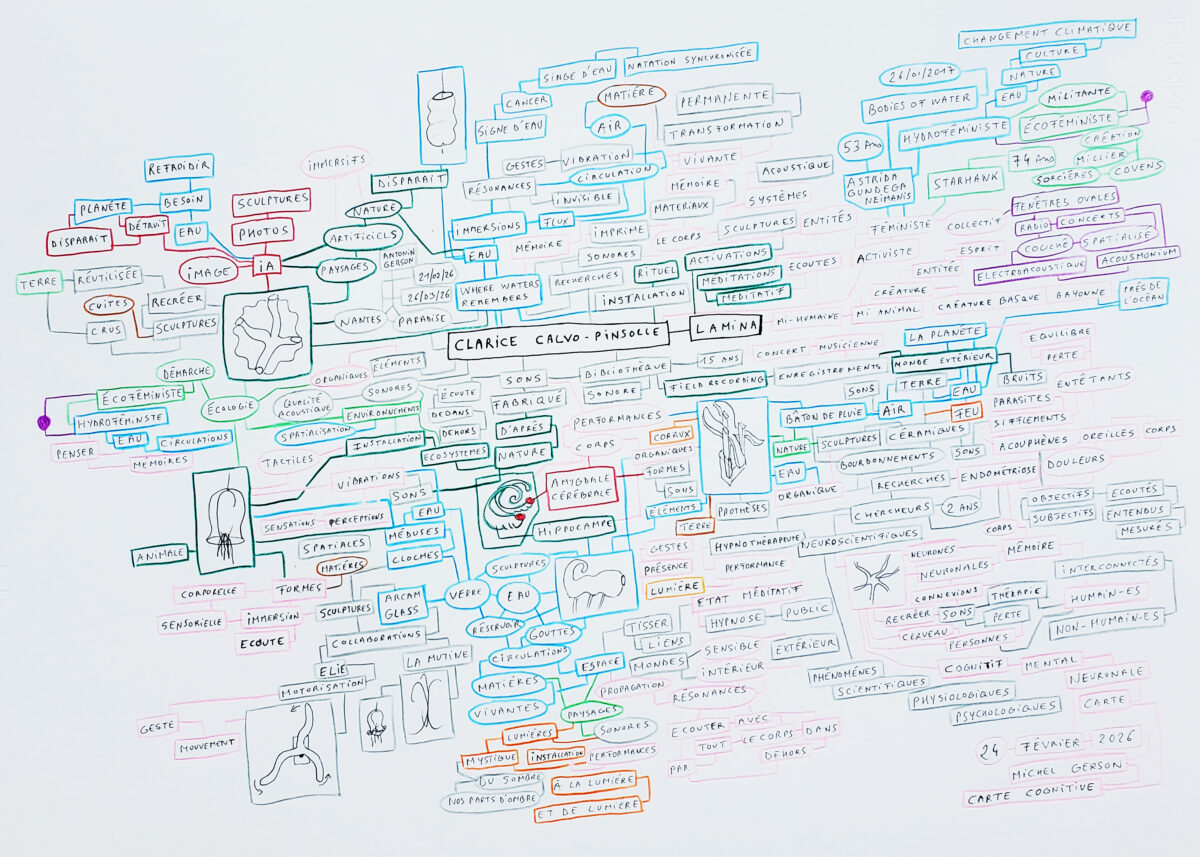 CHANGEMENT CLIMATIQUE
CULTURE
NATURE
EAU
26/01/2017
BODIES OF WATER
HYDROFÉMINISTE
MILITANTE
ÉCOFÉMINISTE
CRÉATION
MILLIER
COVENS
SORCIÈRES
74 ANS
STARHAWK
53 ANS
ASTRIDA
GUNDEGA
NZIMANIS
FÉMINISTE
COLLECTIF
ACTIVISTE
ESPRIT
ENTITÉE
FENÊTRES OVALES
RADIO
CONCERTS
COUCHÉ
SPATIALISÉ
ELECTROACOUSTIQUE
ACOUSMONIUM
SINGE D'EAU
NATATION SYNCHRONISÉE
CANCER
SIGNE D'EAU
MATIÈRE
AIR
PERMANENTE
TRANSFORMATION
GESTES
VIBRATION
CIRCULATION
VIVANTE
RÉSONANCES
INVISIBLE
MÉMOIRE
MATERIAUX
ACOUSTIQUE
SYSTÈMES
IMMERSIONS
FLUX
EAU
MÉMOIRE
IMPRIME
LE CORPS
SCULPTURES
ENTITÉS
SONORES
RECHERCHES
RITUEL
ACTIVATIONS
MEDITATIONS
MEDITATIF
ÉCOUTES
INSTALLATION
WHERE WATERS
REMEMBERS
REFROIDIR
PLANÈTE
BESOIN
DÉTRUIT
DISPARAIT
EAU
IMMERSIFS
SCULPTURES
PHOTOS
IMAGE
IA
DISPARAIT
NATURE
ARTIFICIELS
PAYSAGES
ANTONIN
GERSON
21/02/26
26/03/26
NANTES
PARADISE
TERRE
RÉUTILISÉE
CUITES
RECRÉER
CRUS
SCULPTURES
CLARICE CALVO-PINSOLLE
LAMINA
MI-HUMAINE
MI ANIMAL
CRÉATURE
CRÉATURE BASQUE
BAYONNE
PRÈS DE
L'OCÉAN
DÉMARCHE
ÉCOFÉMINISTE
HYDROFÉMINSTE
EAU
CIRCULATIONS
PENSER
MEMOIRES
ÉCOLOGIE
ORGANIQUES
ÉLÉMENTS
QUALITÉ
ACOUSTIQUE
SONORES
ENVIRONNEMENTS
SPATIALISATION
INSTALLATION
TACTILES
ÉCOUTE
DEDANS
DEHORS
ECOSYSTEMES
SONS
FABRIQUE
D'APRÈS
NATURE
BIBLIOTHÈQUE
SONORE
15 ANS
CONCERT
MUSICIENNE
FIELD RECORDING
ENREGISTREMENTS
SONS
LA PLANÈTE
MONDE EXTÉRIEUR
TERRE
EAU
AIR
FEU
BRUITS
EQUILIBRE
PERTE
ENTÊTANTS
PARASITES
SIFFLEMENTS
ACOUPHÈNES
OREILLES
CORPS
PERFORMANCES
CORPS
CORAUX
ORGANIQUES
FORMES
SONS
ÉLÉMENTS
TERRE
BÂTON DE PLUIE
NATURE
SCULPTURES
CÉRAMIQUES
EAU
BOURDONNEMENTS
SONS
ORGANIQUE
RECHERCHES
ENDOMÉTRIOSE
DOULEURS
PROTHÈSES
CHERCHEURS
2 ANS
CORPS
OBJECTIFS
SUBJECTIFS
ECOUTÉS
ENTENDUS
MESURÉS
AMYGDALE
CÉRÉBRALE
HIPPOCAMPE
VIBRATIONS
SONS
SENSATIONS
PERCEPTIONS
EAU
MÉDUSES
CLOCHES
ANIMALE
SPATIALES
MATIÈRES
FORMES
CORPORELLE
SENSORIELLE
IMMERSION
ECOUTE
SCULPTURES
ARCAM
GLASS
VERRE
EAU
SCULPTURES
RÉSERVOIR
GOUTTES
CIRCULATIONS
MATIÈRES
VIVANTES
COLLABORATIONS
ELIE
MOTORISATION
LA MUTINE
GESTE
MOUVEMENT
ESPACE
PAYSAGES
SONORES
LUMIÈRES
MYSTIQUE
INSTALLATION
PERFORMANCES
DU SOMBRE
NOS PARTS D'OMBRE
À LA LUMIÈRE
ET DE LUMIÈRE
GESTES
PRÉSENCE
LUMIÈRE
HYPNOTHÉRAPEUTE
PERFORMANCE
ETAT MÉDITATIF
HYPNOSE
PUBLIC
TISSER
LIENS
MONDES
SENSIBLE
EXTÉRIEUR
INTÉRIEUR
PROPAGATION
RÉSONANCES
ECOUTER
AVEC
TOUT
LE CORPS
DANS
DEHORS
PAR
NEUROSCIENTIFIQUES
NEURONES
NEURONALES
MÉMOIRE
CONNEXIONS
THÉRAPIE
RECRÉER
SONS
PERTE
CERVEAU
PERSONNES
INTERCONNECTÉS
HUMAIN-ES
NON-HUMAIN-ES
COGNITIF
MENTAL
PHÉNOMÈNES
SCIENTIFIQUES
PHYSIOLOGIQUES
PSYCHOLOGIQUES
NEURONALE
CARTE
24
FÉVRIER
2026
MICHEL GERSON
CARTE COGNITIVE